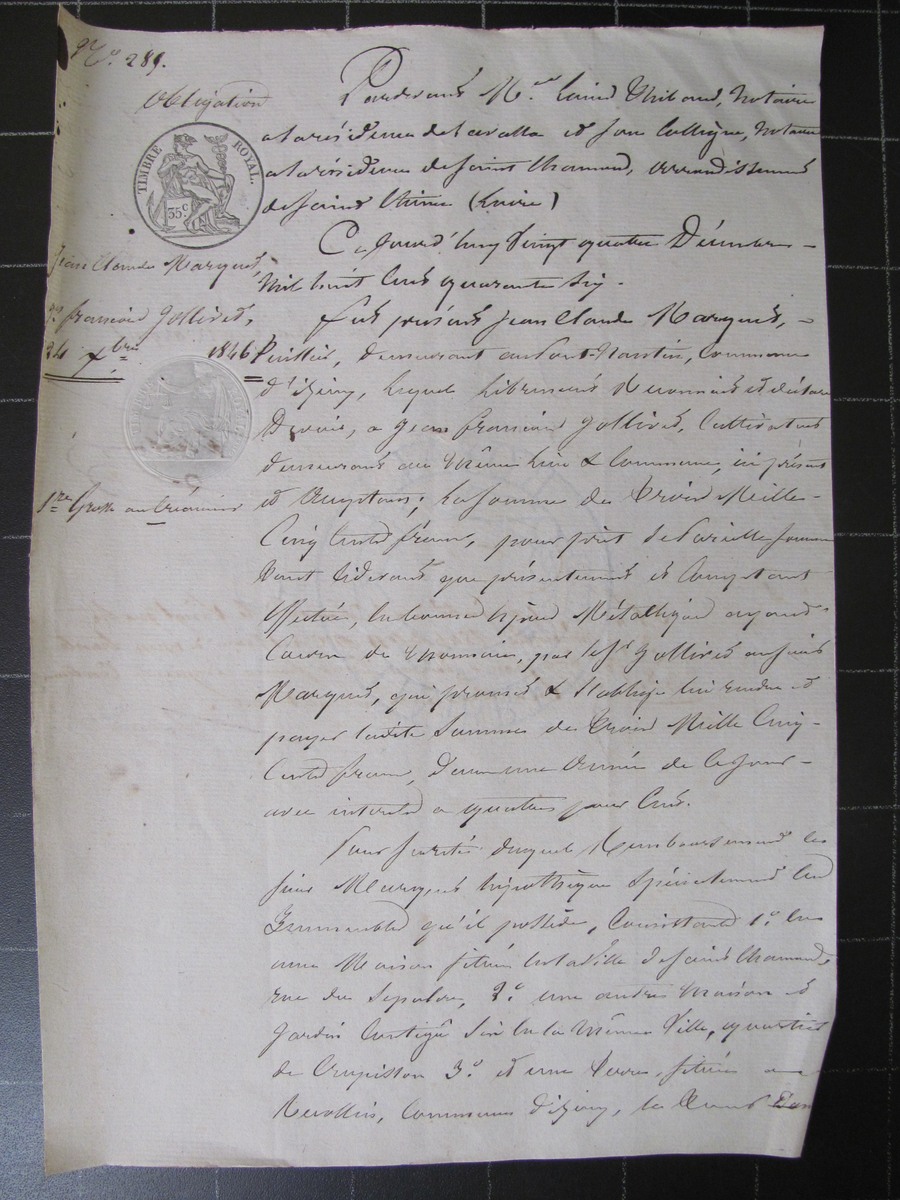 N.° 289.
Obligation
TIMBRE ROYAL.
35.c
Jean Claude Marquet,
françois Jolivet,
24 Xbre 1846
1re Grosse au Créancier
Pardevant Me Thibaud, Notaire
à la résidence de Lavalla et son Collègue, Notaire
à la résidence de Saint Chamond, arrondissement
de Saint Etienne (Loire)
Ce Jourd'huy Vingt quatre Décembre
Mil huit Cent quarante Six.
fut présent Jean Claude Marquet,
demeurant au Commune
d'Izieux, Lequel Librement Reconnait et déclare
Devoir, à Jean françois Jolivet, Cultivateur
demeurant au Même Lieu & Commune, ici présent
et Acceptant; La Somme de Trois Mille
Cinq Cents francs, pour prêt de Pareille Somme
que présentement et Comptant
effectué, en bonnes Espèces Métalliques ayant
Cours de Monnaie, par le Sr Jolivet au Sieur
Marquet, qui promet & S'oblige lui rendre et
payer ladite Somme de Trois Mille Cinq
Cents francs, Dans une Année de Ce Jour
avec intérêts à quatre pour Cent.
Pour Sureté duquel Remboursement le
Sieur Marquet hypothèque Spécialement Les
Immeubles qu'il possède, Consistant 1.° En
une Maison située en la Ville de Saint Chamond,
rue du Sépulcre, 2.° une autre Maison et
Jardin Contigu Sis en la Même Ville, quartier
de 3.° et une Terre, située au
Commune d'Izieux,